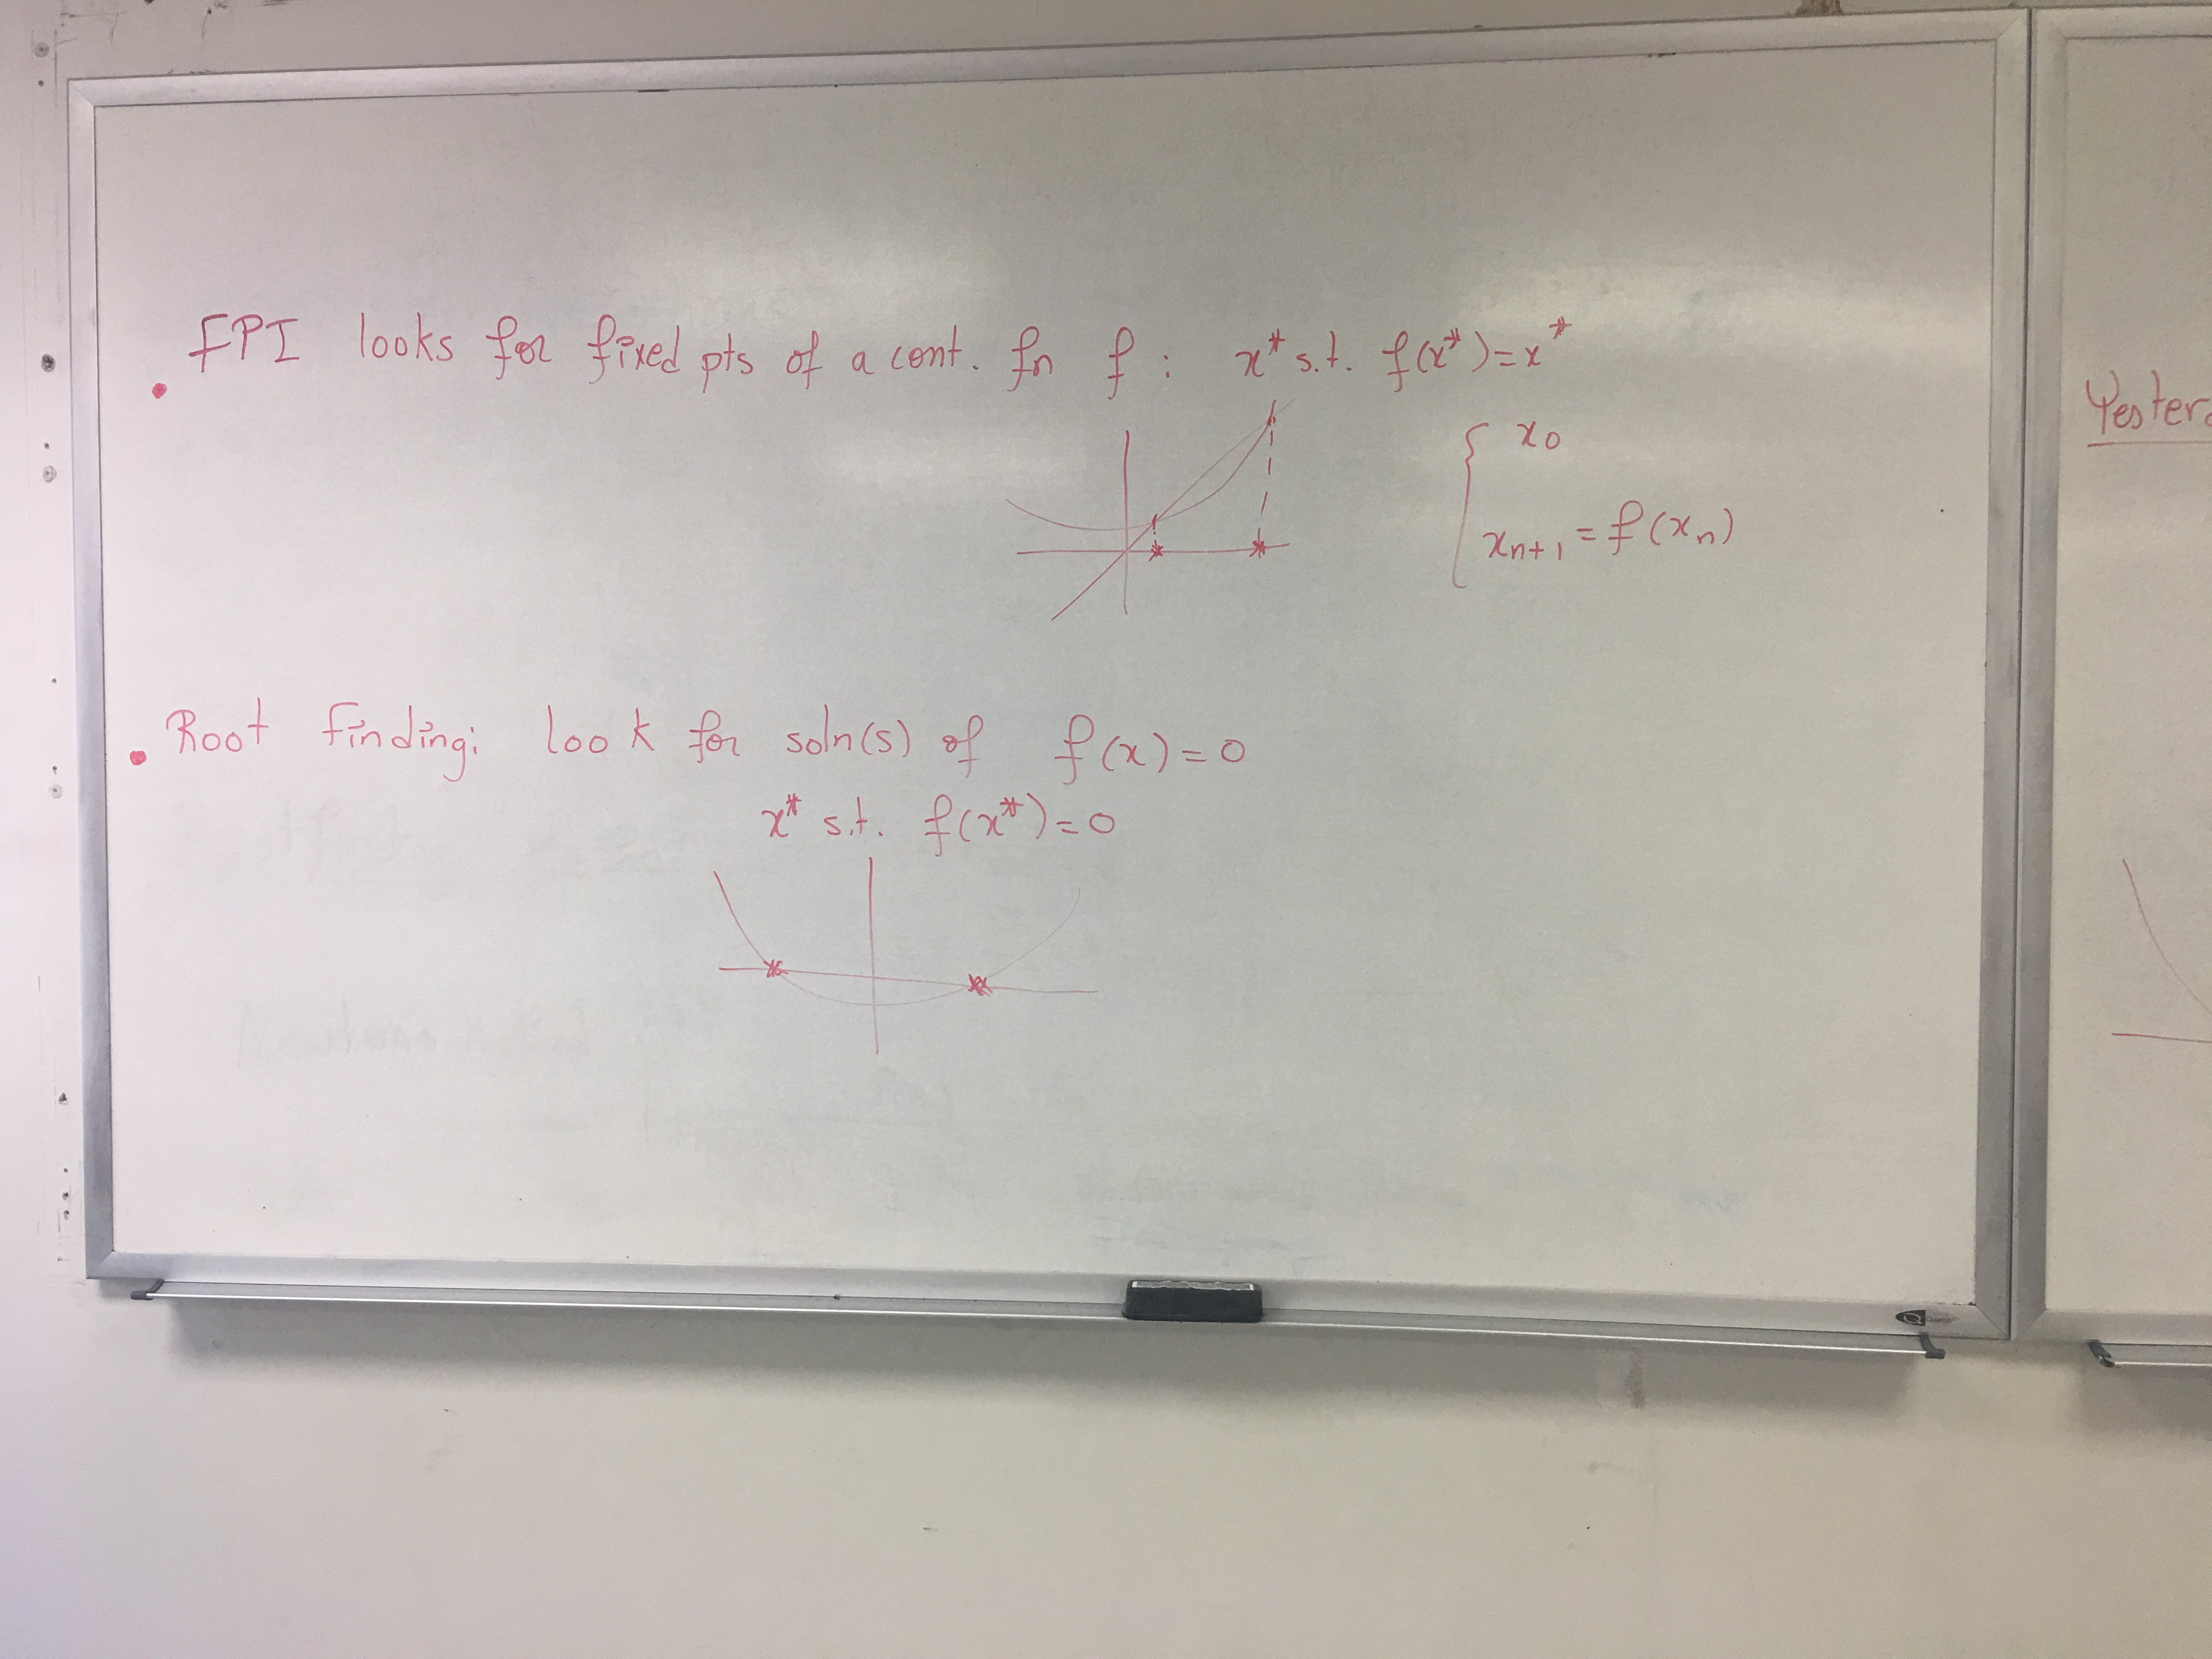 • FPI looks for fixed pts of a cont. fn f : x* s.t. f(x*)=x*
{ x₀
xₙ₊₁ = f(xₙ)
• Root finding: look for soln(s) of f(x)=0
x* s.t. f(x*)=0